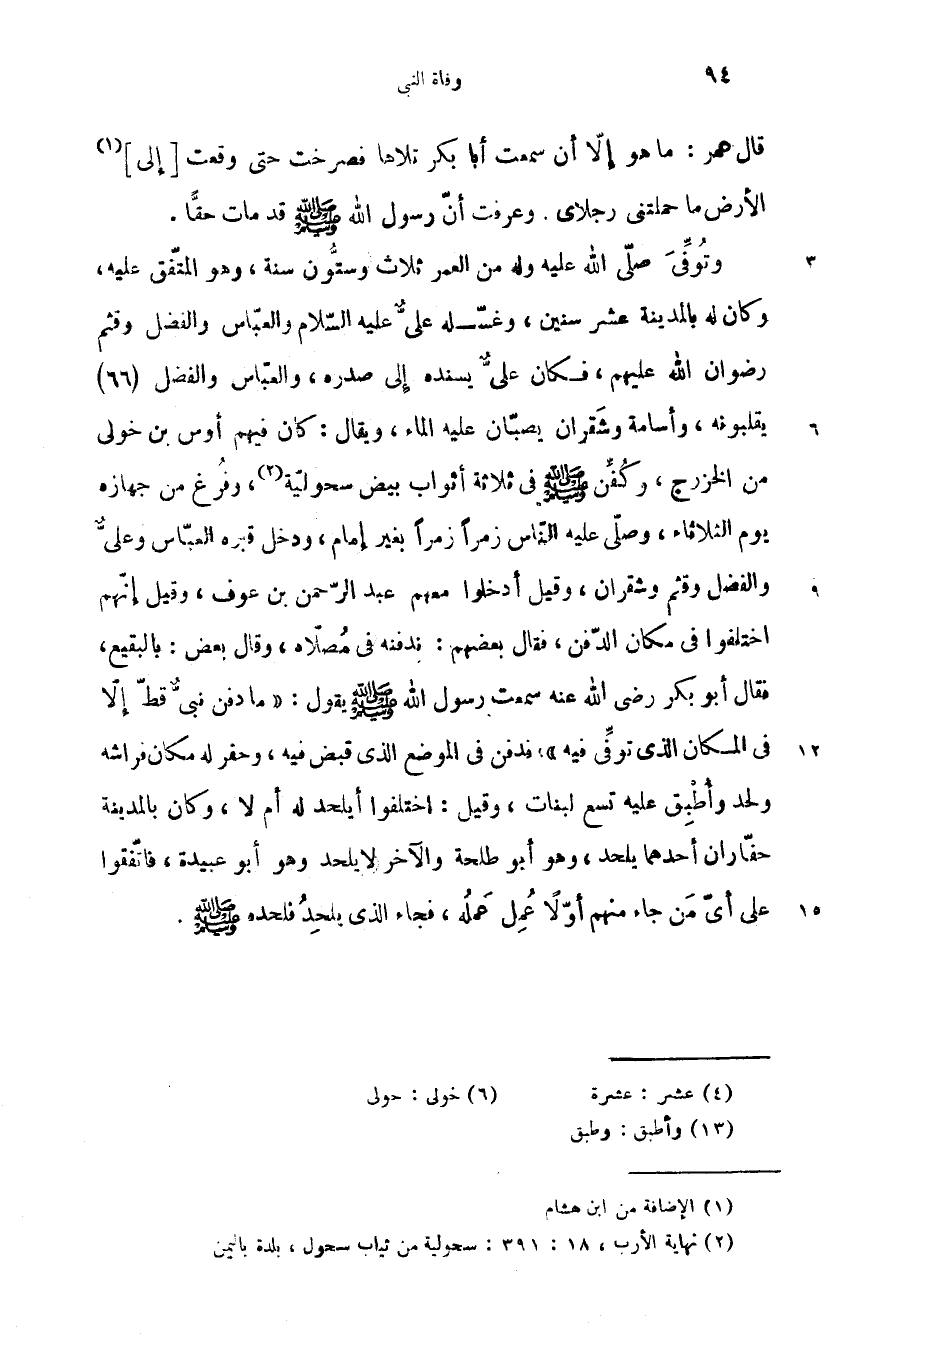 ٩٤ وفاة النبى
قال عمر : ما هو إلّا أن سمعت أبا بكر تلاها فصرخت حتى وقعت [ إلى ](١)
الأرض ما حملتنى رجلاى . وعرفت أنّ رسول الله ﷺ قد مات حقًّا .
٣ وتُوُفِّىَ صلّى الله عليه وله من العمر ثلاث وستُّون سنة ، وهو المتّفق عليه ،
وكان له بالمدينة عشر سنين ، وغسّـله علىٌّ عليه السّلام والعبّاس والفضل وقثم
رضوان الله عليهم ، فـكان علىٌّ يسنده إلى صدره ، والعبّاس والفضل (٦٦)
٦ يقلبونه ، وأسامة وشَقران يصبّان عليه الماء ، ويقال : كان فيهم أوس بن خولى
من الخزرج ، وكُفِّن ﷺ فى ثلاثة أثواب بيض سحوليّة(٢) ، وفُرغ من جهازه
يوم الثلاثاء ، وصلّى عليه النّاس زمراً زمراً بغير إمام ، ودخل قبره العبّاس وعلىٌّ
٩ والفضل وقثم وشقران ، وقيل أدخلوا معهم عبد الرّحمن بن عوف ، وقيل إنّهم
اختلفوا فى مكان الدّفن ، فقال بعضهم : ندفنه فى مُصلّاه ، وقال بعض : بالبقيع ،
فقال أبو بكر رضى الله عنه سمعت رسول الله ﷺ يقول : « ما دفن نبىٌّ قطّ إلّا
١٢ فى المـكان الذى توفِّى فيه » ، فدفن فى الموضع الذى قبض فيه ، وحفر له مكان فراشه
ولحد وأُطْبِق عليه تسع لبنات ، وقيل : اختلفوا أيلحد له أم لا ، وكان بالمدينة
حفّاران أحدهما يلحد ، وهو أبو طلحة والآخر لا يلحد وهو أبو عبيدة ، فاتّفقوا
١٥ على أىّ مَن جاء منهم أوّلًا عُمِل عَملُه ، فجاء الذى يلحِدُ فلحده ﷺ .
(٤) عشر : عشرة (٦) خولى : حولى
(١٣) وأطبق : وطبق
(١) الإضافة من ابن هشام
(٢) نهاية الأرب ، ١٨ : ٣٩١ : سحولية من ثياب سحول ، بلدة باليمن